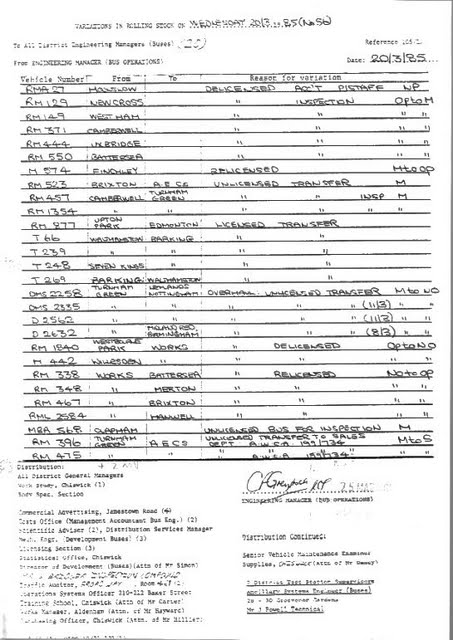 VARIATIONS IN ROLLING STOCK ON WEDNESDAY 20/3 85 (No 56)
To All District Engineering Managers (Buses) (20) Reference 105/2
From ENGINEERING MANAGER (BUS OPERATIONS) Date: 20/3/85
Vehicle Number From To Reason for variation
RMA 27 HOUNSLOW DELICENSED ACC'T NP
RM 129 NEW CROSS " INSPECTION Op to M
RM 149 WEST HAM " " "
RM 371 CAMBERWELL " " "
RM 444 UXBRIDGE " " "
RM 550 BATTERSEA " " "
M 574 FINCHLEY RELICENSED M to OP
RM 523 BRIXTON A.E.C.S UNLICENSED TRANSFER M
RM 457 CAMBERWELL TURNHAM GREEN " " INSP M
RM 1354 " " " " "
RM 877 UPTON PARK EDMONTON LICENSED TRANSFER
T 66 WALTHAMSTOW BARKING " "
T 239 " " " "
T 248 SEVEN KINGS " " "
T 269 BARKING WALTHAMSTOW " "
DMS 2258 TURNHAM GREEN NOTTINGHAM OVERHAUL UNLICENSED TRANSFER M to NO
DMS 2325 " " " " " (11/3) " "
D 2562 " " " " " (11/3) " "
D 2632 " BIRMINGHAM " " " (8/3) " "
RM 1840 WESTBOURNE PARK WORKS DELICENSED Op to NO
M 442 WILLESDEN " " "
RM 338 WORKS BATTERSEA RELICENSED No to op
RM 348 " MERTON " "
RM 467 " BRIXTON " "
RML 2584 " HANWELL " "
MBA 568 CLAPHAM UNLICENSED BUS FOR INSPECTION M
RM 396 TURNHAM GREEN A.E.C.S UNLICENSED TRANSFER TO SALES DEPT A.W.C.A 199/734 M to S
RM 475 " " " A.W.C.A 199/734 "
Distribution:
All District General Managers
Work Study, Chiswick (2)
Body Spec. Section
ENGINEERING MANAGER (BUS OPERATIONS)
Commercial Advertising, Jamestown Road (4)
Costs Office (Management Accountant Bus Eng.) (2)
Scientific Adviser (2), Distribution Services Manager
Mech. Engr. (Development Buses) (3)
Licensing Section (3)
Statistical Office, Chiswick
Director of Development (Buses)(Attn of Mr Simon)
Traffic Auditor,
Operations Systems Officer 210-212 Baker Street
Training School, Chiswick (Attn of Mr Carter)
Works Manager, Aldenham (Attn of Mr Hayward)
Purchasing Officer, Chiswick (Attn. of Mr Hillier)
Distribution Continued:
Senior Vehicle Maintenance Examiner
Supplies, Chiswick (Attn of Mr Dewey)
District Test Station Supervisors
Ancillary Systems Engineer (Buses)
28 - 30 Grosvenor Gardens
Mr J Powell Technical